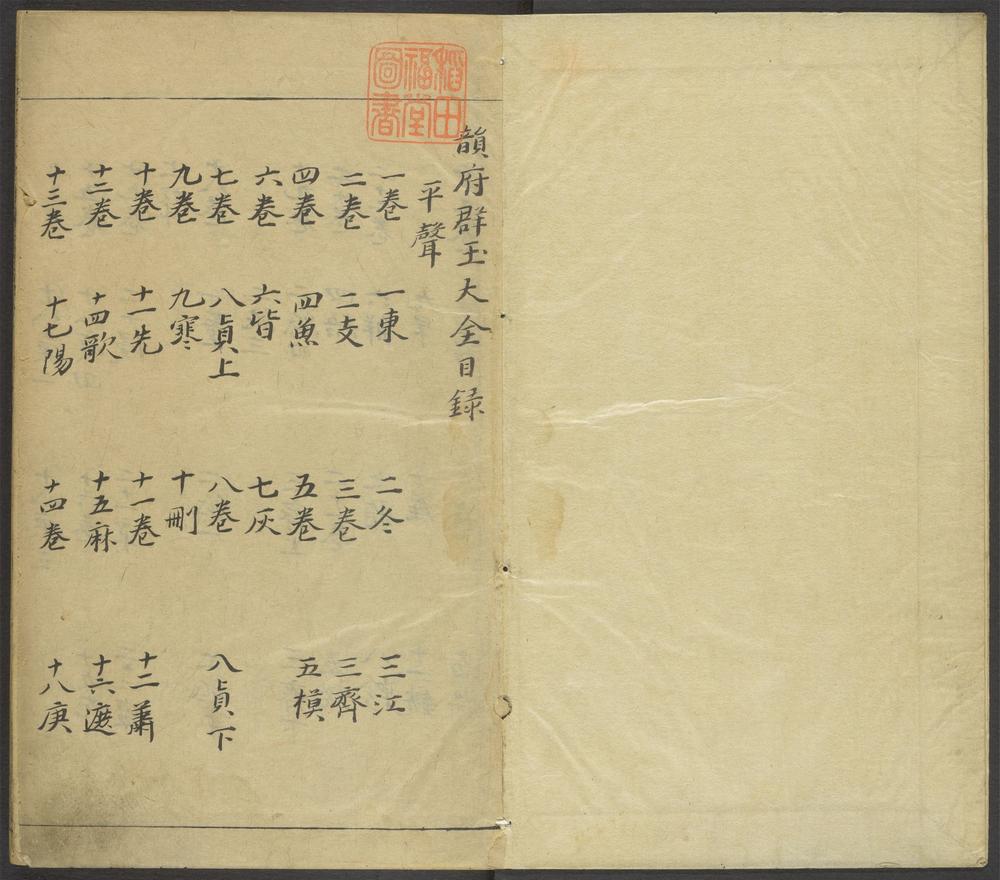 稻田
福堂
圖書
韻府群玉大全目録
平聲
一卷 一東 二冬 三江
二卷 二支 三卷 三齊
四卷 四魚 五卷 五模
六卷 六皆 七灰
七卷 八貞上 八卷 八貞下
九卷 九寒 十刪
十卷 十一先 十一卷 十二蕭
十二卷 十四歌 十五麻 十六遮
十三卷 十七陽 十四卷 十八庚